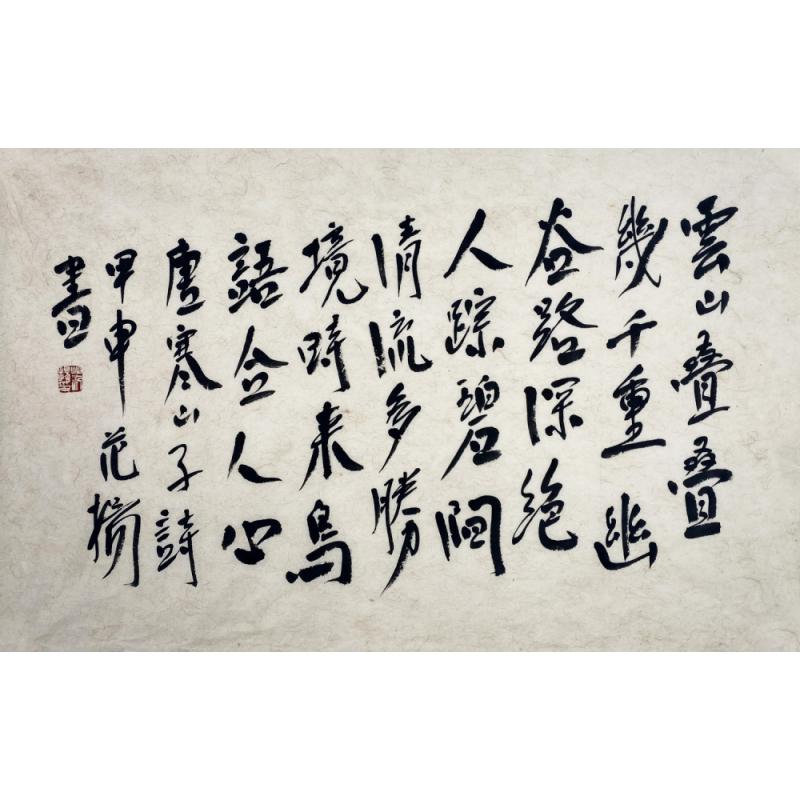 雲山疊疊
幾千重幽
谷路深絕
人踪碧澗
清流多勝
境時来鳥
語合人心
唐寒山子詩
甲申范揚
書